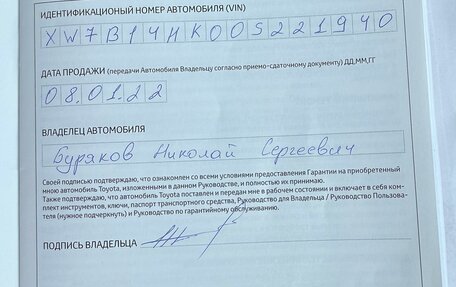 ИДЕНТИФИКАЦИОНЫЙ НОМЕР АВТОМОБИЛЯ (VIN)
XW7B14HK00S221940
ДАТА ПРОДАЖИ (передачи Автомобиля Владельцу согласно приемо-сдаточному документу) ДД,ММ,ГГ
08.01.22
ВЛАДЕЛЕЦ АВТОМОБИЛЯ
Буряков Николай Сергеевич
Своей подписью подтверждаю, что ознакомлен со всеми условиями предоставления Гарантии на приобретенный
мною автомобиль Toyota, изложенными в данном Руководстве, и полностью их принимаю.
Также подтверждаю, что автомобиль Toyota поставлен и передан мне в рабочем состоянии и включает в себя ком-
плект инструментов, ключи, паспорт транспортного средства, Руководство для Владельца / Руководство Пользова-
теля (нужное подчеркнуть) и Руководство по гарантийному обслуживанию.
ПОДПИСЬ ВЛАДЕЛЬЦА